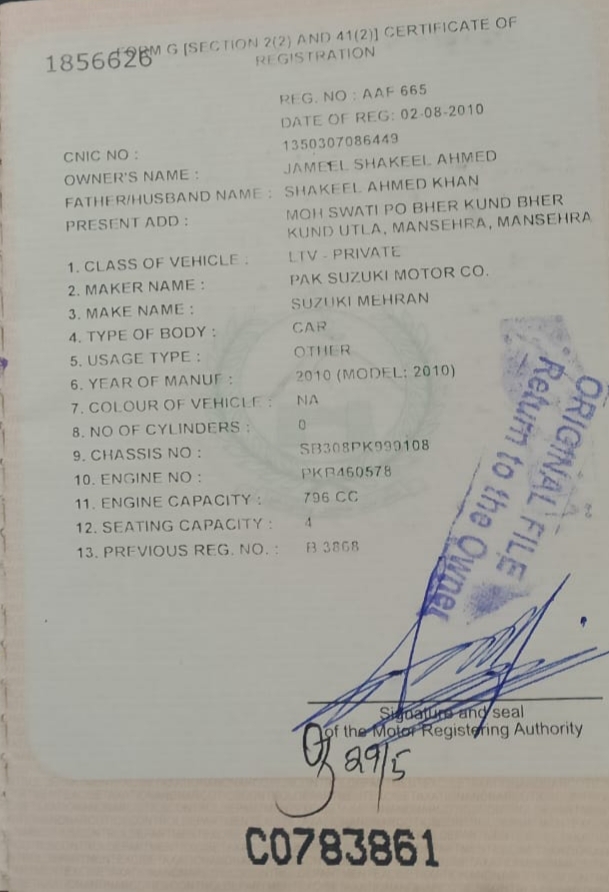 FORM G [SECTION 2(2) AND 41(2)] CERTIFICATE OF
1856626
REGISTRATION
REG. NO : AAF 665
DATE OF REG: 02-08-2010
CNIC NO : 1350307086449
OWNER'S NAME : JAMEEL SHAKEEL AHMED
FATHER/HUSBAND NAME : SHAKEEL AHMED KHAN
PRESENT ADD : MOH SWATI PO BHER KUND BHER
KUND UTLA, MANSEHRA, MANSEHRA
1. CLASS OF VEHICLE : LTV - PRIVATE
2. MAKER NAME : PAK SUZUKI MOTOR CO.
3. MAKE NAME : SUZUKI MEHRAN
4. TYPE OF BODY : CAR
5. USAGE TYPE : OTHER
6. YEAR OF MANUF : 2010 (MODEL: 2010)
7. COLOUR OF VEHICLE : NA
8. NO OF CYLINDERS : 0
9. CHASSIS NO : SB308PK999108
10. ENGINE NO : PKR460578
11. ENGINE CAPACITY : 796 CC
12. SEATING CAPACITY : 4
13. PREVIOUS REG. NO. : B 3868
ORIGINAL FILE
Return to the Owner
Signature and seal
of the Motor Registering Authority
29/5
C0783861